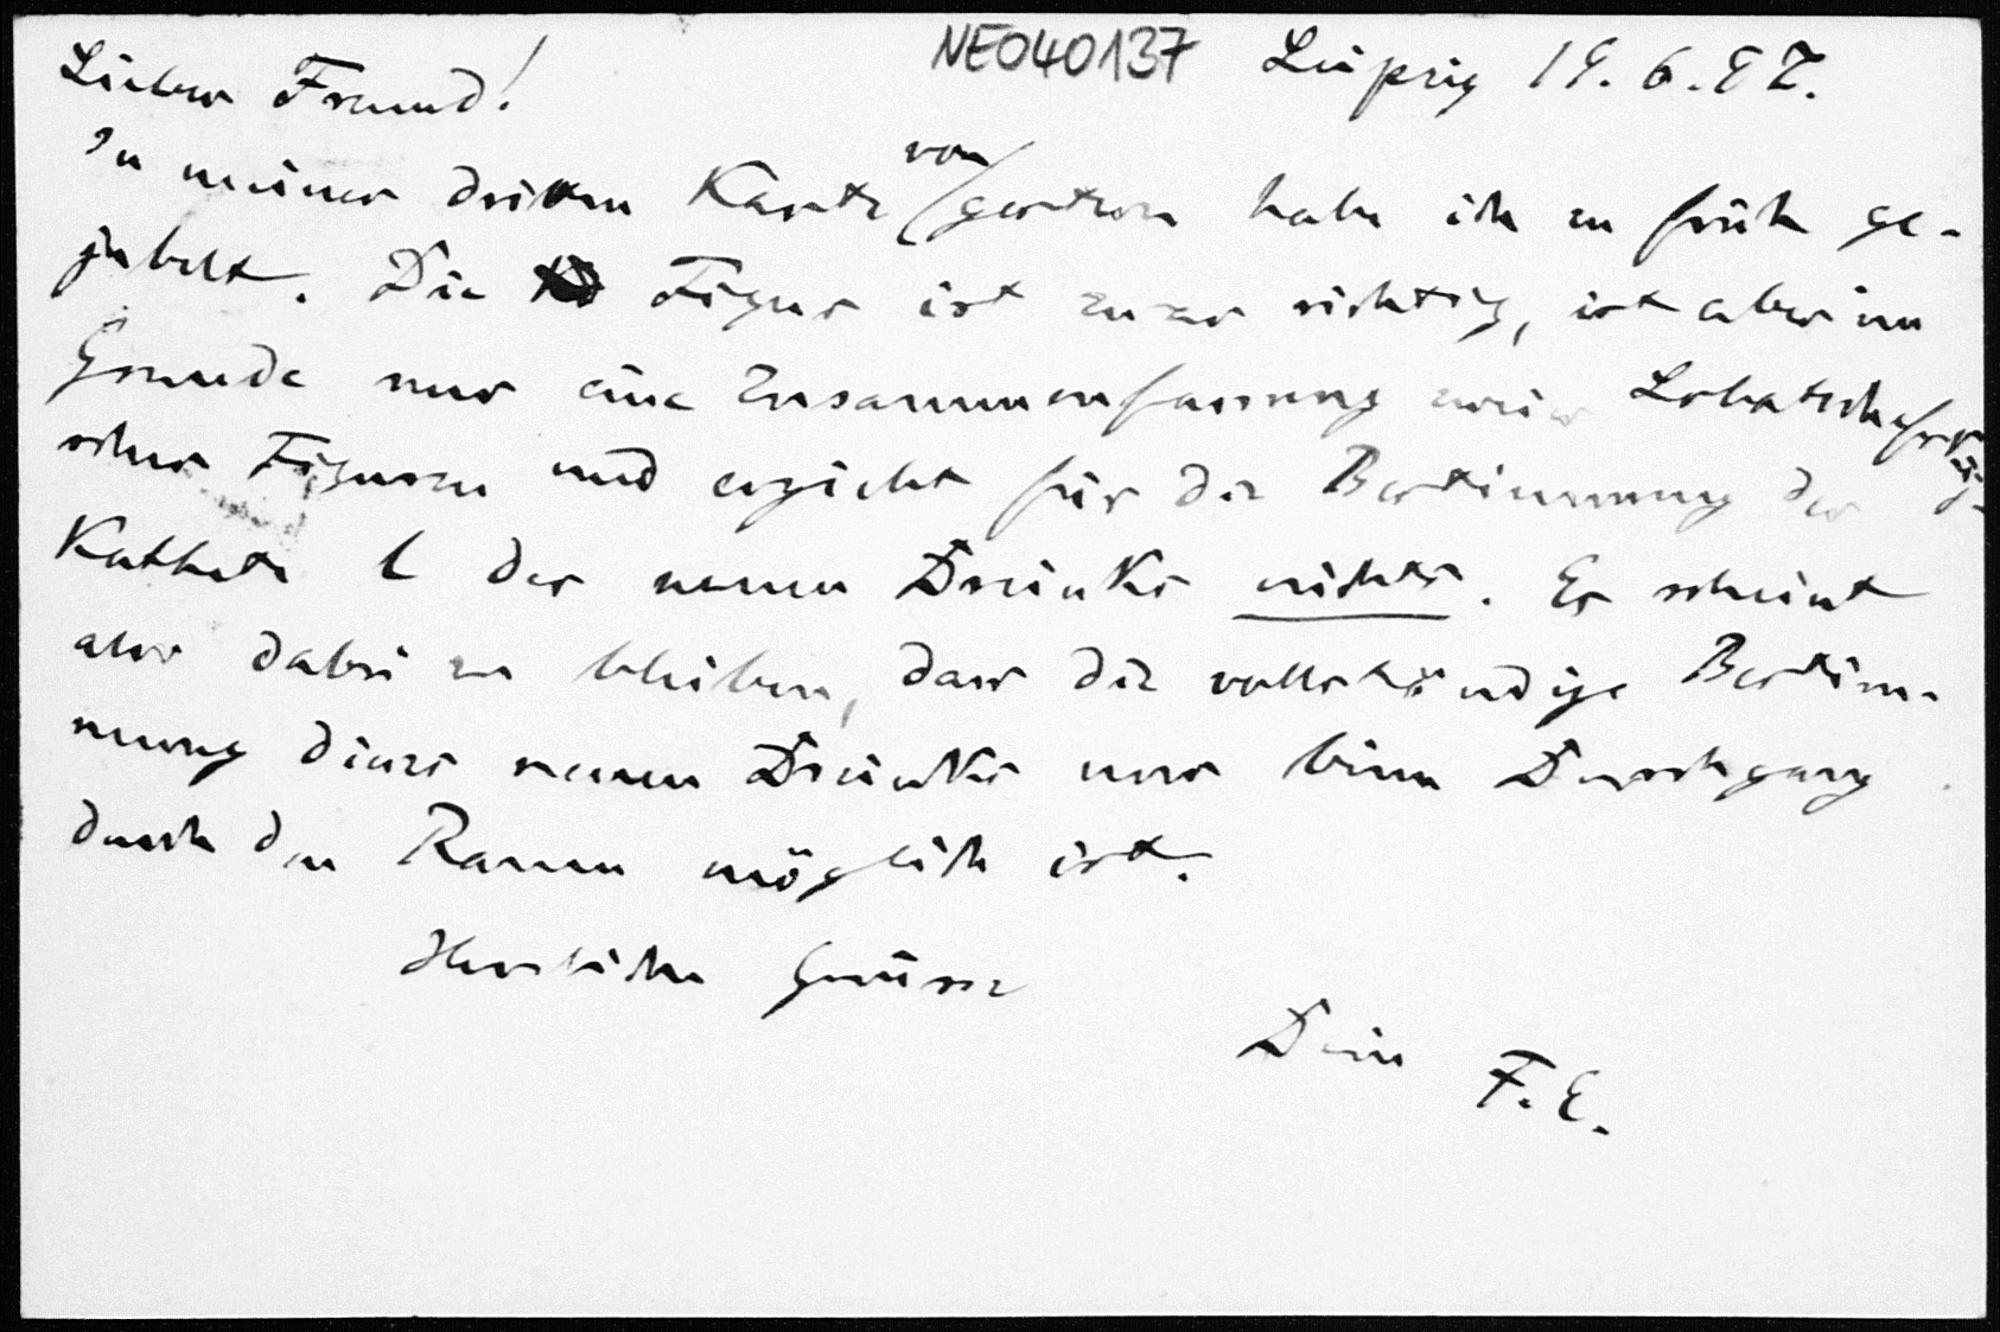 NE040137 Leipzig 19.6.97.
Lieber Freund!
In meiner dritten Karte von gestern habe ich zu früh ge-
jubelt. Die Figur ist zwar richtig, ist aber im
Grunde nur eine Zusammenfassung zweier Lobatschefskij-
scher Figuren und ergiebt für die Bestimmung der
Kathete l des neuen Dreiecks nichts. Es scheint
also dabei zu bleiben, dass die vollständige Bestim-
mung dieses neuen Dreiecks nur beim Durchgang
durch den Raum möglich ist.
Herzliche Grüsse
Dein F.E.